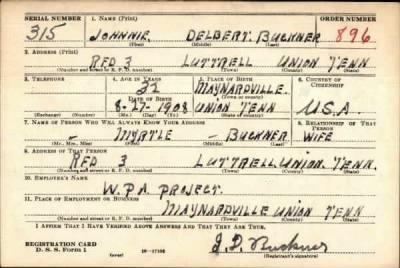 SERIAL NUMBER 1. NAME (Print) ORDER NUMBER
315 JOHNNIE DELBERT BUCKNER 896
(First) (Middle) (Last)
2. ADDRESS (Print)
RFD 3 LUTTRELL UNION TENN
(Number and street or R. F. D. number) (Town) (County) (State)
3. TELEPHONE 4. AGE IN YEARS 5. PLACE OF BIRTH 6. COUNTRY OF CITIZENSHIP
32 MAYNARDVILLE
DATE OF BIRTH (Town or county)
8-27-1908 UNION TENN U.S.A.
(Exchange) (Number) (Mo.) (Day) (Yr.) (State or country)
7. NAME OF PERSON WHO WILL ALWAYS KNOW YOUR ADDRESS 8. RELATIONSHIP OF THAT PERSON
- MYRTLE - BUCKNER WIFE
(Mr., Mrs., Miss) (First) (Middle) (Last)
9. ADDRESS OF THAT PERSON
RFD 3 LUTTRELL UNION. TENN.
(Number and street or R. F. D. number) (Town) (County) (State)
10. EMPLOYER'S NAME
W.P.A. PROJECT.
11. PLACE OF EMPLOYMENT OR BUSINESS
MAYNARDVILLE UNION TENN
(Number and street or R. F. D. number) (Town) (County) (State)
I AFFIRM THAT I HAVE VERIFIED ABOVE ANSWERS AND THAT THEY ARE TRUE.
REGISTRATION CARD J. D. Buckner
D. S. S. Form 1 (over) (Registrant's signature)